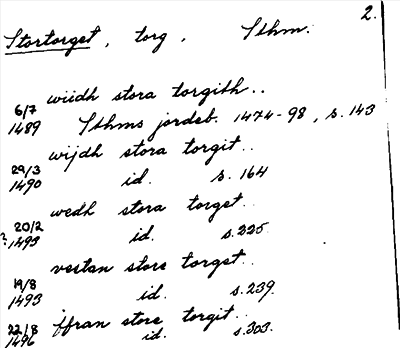 2.
Stortorget, torg, Sthm.
wiidh stora torgith..
6/7 1489 Sthms jordeb. 1474-98, s. 143
wijdh stora torgit..
29/3 1490 id. s. 164
wedh stora torget..
? 20/2 1493 id. s. 225.
vestan store torget..
19/8 1493 id. s. 239.
ffran store torgit..
22/8 1496 id. s. 303.